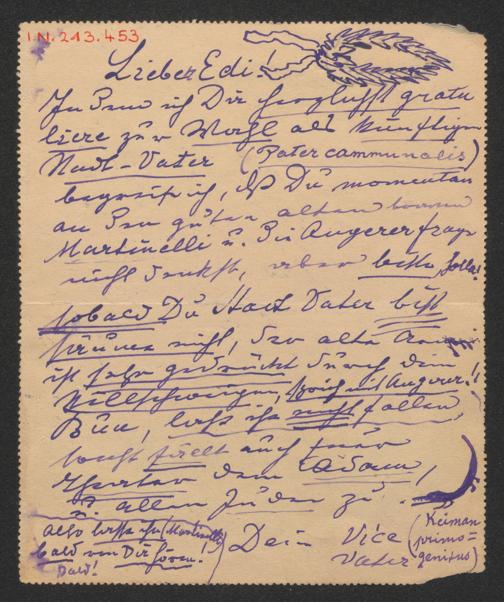 I.N. 213.453
Lieber Edi!
Indem ich Dir herzlichst gratu
liere zur Wahl als künftigen
Stadt-Vater (Pater communalis)
begreife ich, daß Du momentan
an den guten alten braven
Martinelli u. die Angererfrage
nicht denkst, aber bitte
sobald Du Stadt Vater bist
nicht, der alte
ist sehr gedrückt durch dein
Stillschweigen, Angerer!!
laß ihn nicht fallen,
sonst fällt auch
dem Adam,
u. allen Juden zu.
also lasse ihn (Martinelli)
bald von Dir hören!
bald!
Dein Vice
Vater
(Keiman
primo=
genitus)